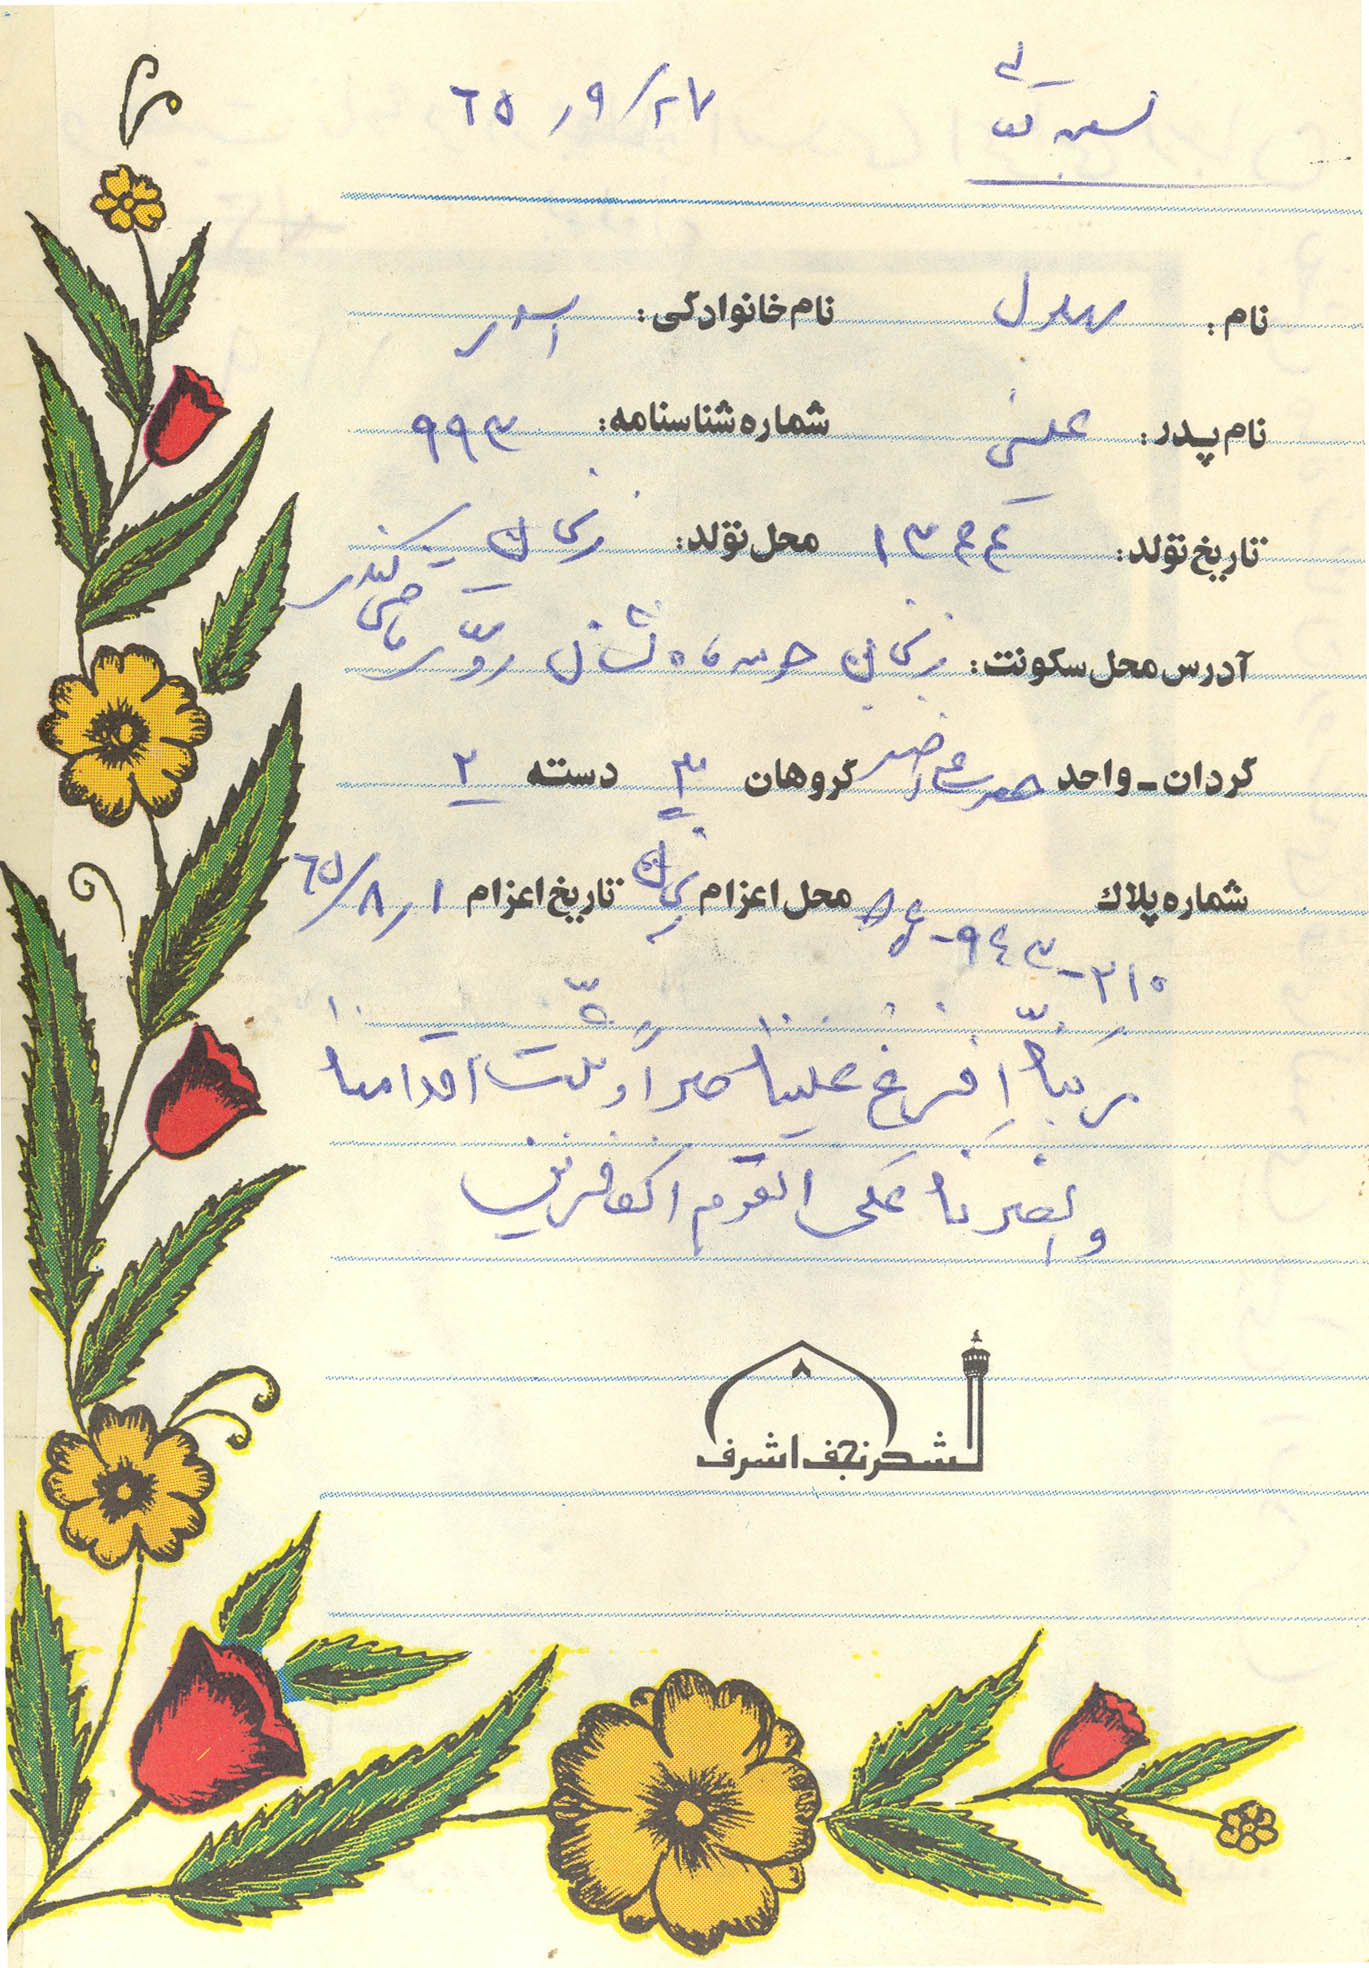 بسمه تعالی ۶۵/۹/۲۷
نام: بهلول نام خانوادگی:
نام پدر: علی شماره شناسنامه: ۹۹۳
تاریخ تولد: ۱۳۴۴ محل تولد: زنجان
آدرس محل سکونت: زنجان
گردان - واحد حضرت علی اصغر گروهان ۳ دسته ۲
شماره پلاك محل اعزام زنجان تاریخ اعزام ۶۵/۸/۱
۲۱۰-۹۴۳-
ربّنا افرغ علینا صبراً و ثبّت اقدامنا
و انصرنا علی القوم الکافرین
۸
لشکر نجف اشرف